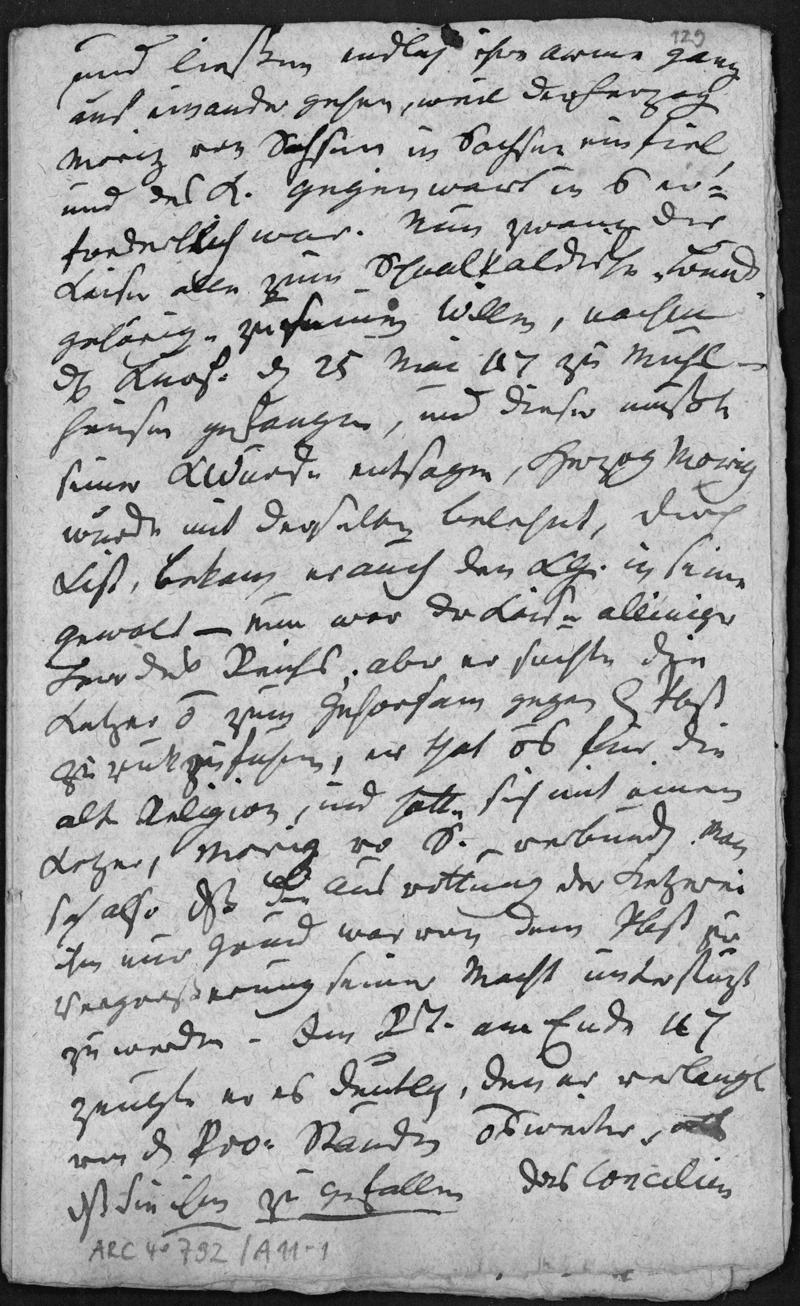 129
und ließen endlich ihre armee ganz
aus einander gehen, weil der Herzog
Moritz von Sachsen in Sachsen einfiel,
und des K. gegenwart in S er=
forderlich war. Nun zwang der
Kaiser alle zum Schmalkaldischen Bund
gehörig. zu seinem Willen, nahm
d Kurf. d 25 Mai 47 zu Muhl-
hausen gefangen, und dieser mußte
seiner KWürde entsagen, Herzog Moriz
wurde mit derselben belehnt, durch
List, bekam er auch den LG. in seine
gewalt — nun war der Kaiser alleiniger
Herr des Reichs, aber er suchte die
Ketzer zum Gehorsam gegen d Pbst
zurükzuführen, er that für die
alte Religion, und hatte sich mit einem
Ketzer, Moriz vo S. verbund. Man
sah also dß die ausrottung der Ketzerei
ihm nur Grund war von dem Pbst zur
Vergroßerung seiner Macht unterstüzt
zu werden. Am RT. am Ende 47
zeugte er es deutlich, denn er verlangt
von d Pro. Ständen weiter, als
dß sie ihm zu gefallen das Concilium
ARC 4° 792 / A 11-1